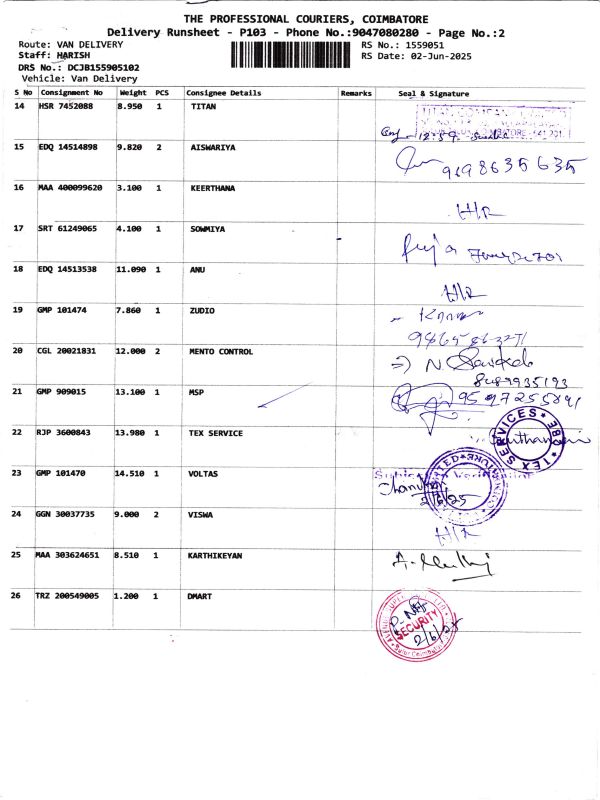 THE PROFESSIONAL COURIERS, COIMBATORE
Delivery Runsheet - P103 - Phone No.:9047080280 - Page No.:2
Route: VAN DELIVERY RS No.: 1559051
Staff: HARISH RS Date: 02-Jun-2025
DRS No.: DCJB155905102
Vehicle: Van Delivery
S No Consignment No Weight PCS Consignee Details Remarks Seal & Signature
14 HSR 7452088 8.950 1 TITAN
15 EDQ 14514898 9.820 2 AISWARIYA 9698635635
16 MAA 400099620 3.100 1 KEERTHANA H/R
17 SRT 61249065 4.100 1 SOWMIYA
18 EDQ 14513538 11.090 1 ANU H/R
19 GMP 101474 7.860 1 ZUDIO
20 CGL 20021831 12.000 2 MENTO CONTROL
8489935193
21 GMP 909015 13.100 1 MSP 9597255891
22 RJP 3600843 13.980 1 TEX SERVICE TEX SERVICES CBE
23 GMP 101470 14.510 1 VOLTAS
2/6/25
24 GGN 30037735 9.000 2 VISWA H/R
25 MAA 303624651 8.510 1 KARTHIKEYAN
26 TRZ 200549005 1.200 1 DMART SECURITY
2/6/25